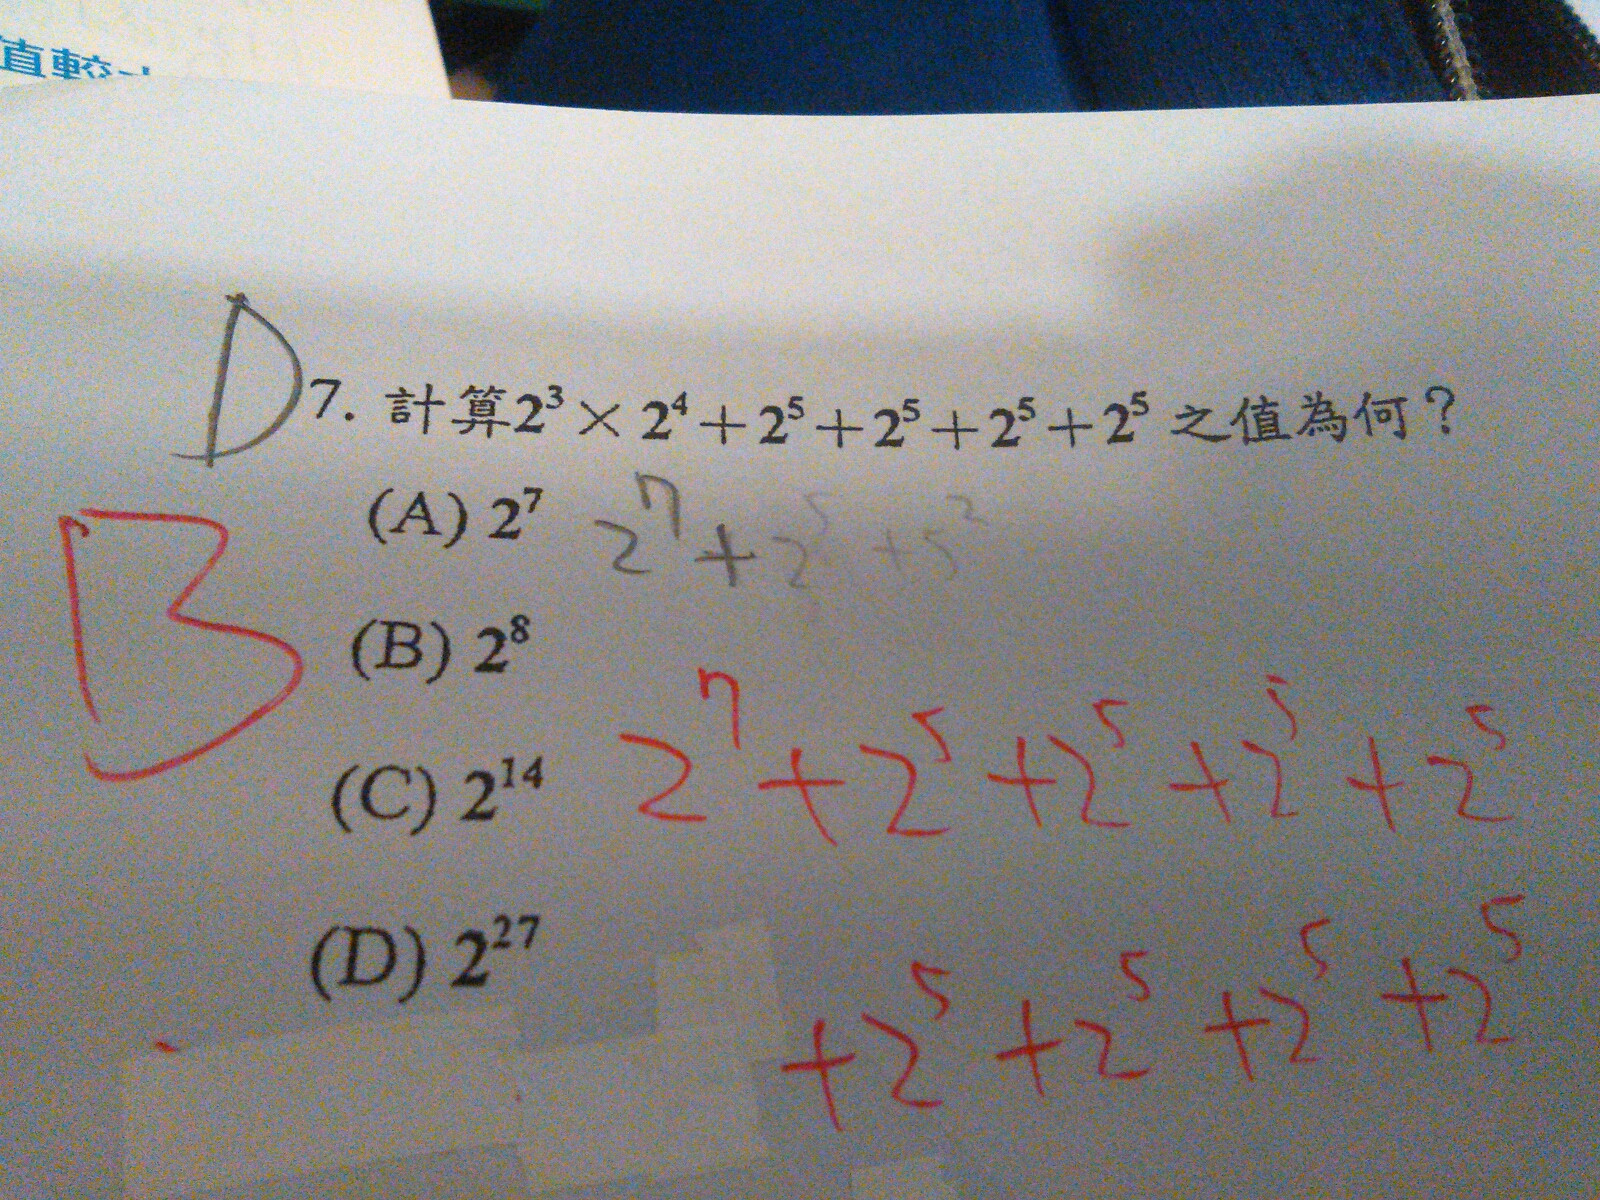 值較
D 7. 計算2³ × 2⁴ + 2⁵ + 2⁵ + 2⁵ + 2⁵ 之值為何？
(A) 2⁷
2⁷ + 2⁵ + 5²
B
(B) 2⁸
(C) 2¹⁴
2⁷ + 2⁵ + 2⁵ + 2⁵ + 2⁵
(D) 2²⁷
+ 2⁵ + 2⁵ + 2⁵ + 2⁵